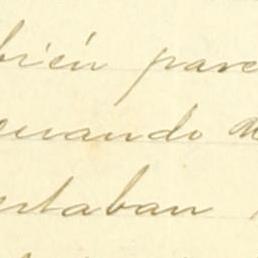 bién pare
cuando d
ntaban